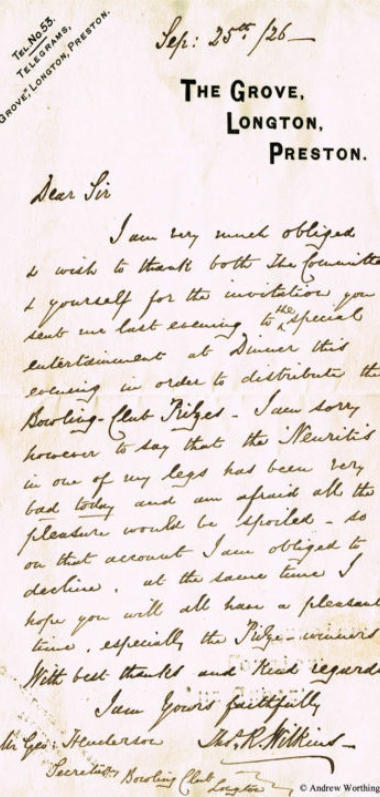 TEL. No 53.
TELEGRAMS,
GROVE," LONGTON, PRESTON.
Sep: 25th /26
THE GROVE,
LONGTON,
PRESTON.
Dear Sir
I am very much obliged
& wish to thank both the Committe
& yourself for the invitation you
sent me last evening to the special
entertainment at Dinner this
evening in order to distribute the
Bowling-Club Prizes - I am sorry
however to say that the Neuritis
in one of my legs has been very
bad today and am afraid all the
pleasure would be spoiled - so
on that account I am obliged to
decline, at the same time I
hope you will all have a pleasant
time, especially the Prize-winners
With best thanks and Kind regards
I am Yours faithfully
Mr Geo: Henderson Thos. R. Wilkins
Secretary Bowling Club
Longton
© Andrew Worthing